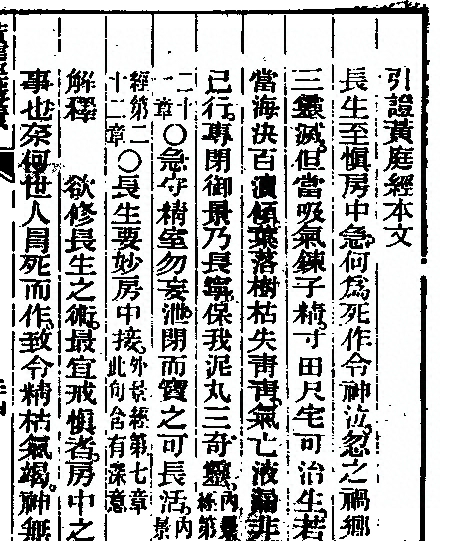 引證黃庭經本文
長生至愼房中急。何爲死作令神泣。忽之禍鄉
三靈滅。但當吸氣鍊子精。寸田尺宅可治生。若
當海決百瀆傾。葉落樹枯失靑靑。氣亡液漏非
己行。專閉御景乃長寧。保我泥丸三奇靈。內景經第
二十一章〇急守精室勿妄泄。閉而寶之可長活。內景
經第二十二章〇長生要妙房中接。外景經第七章此句含有深意
解釋　欲修長生之術。最宜戒愼者。房中之
事也。奈何世人冒死而作。致令精枯氣竭。神無